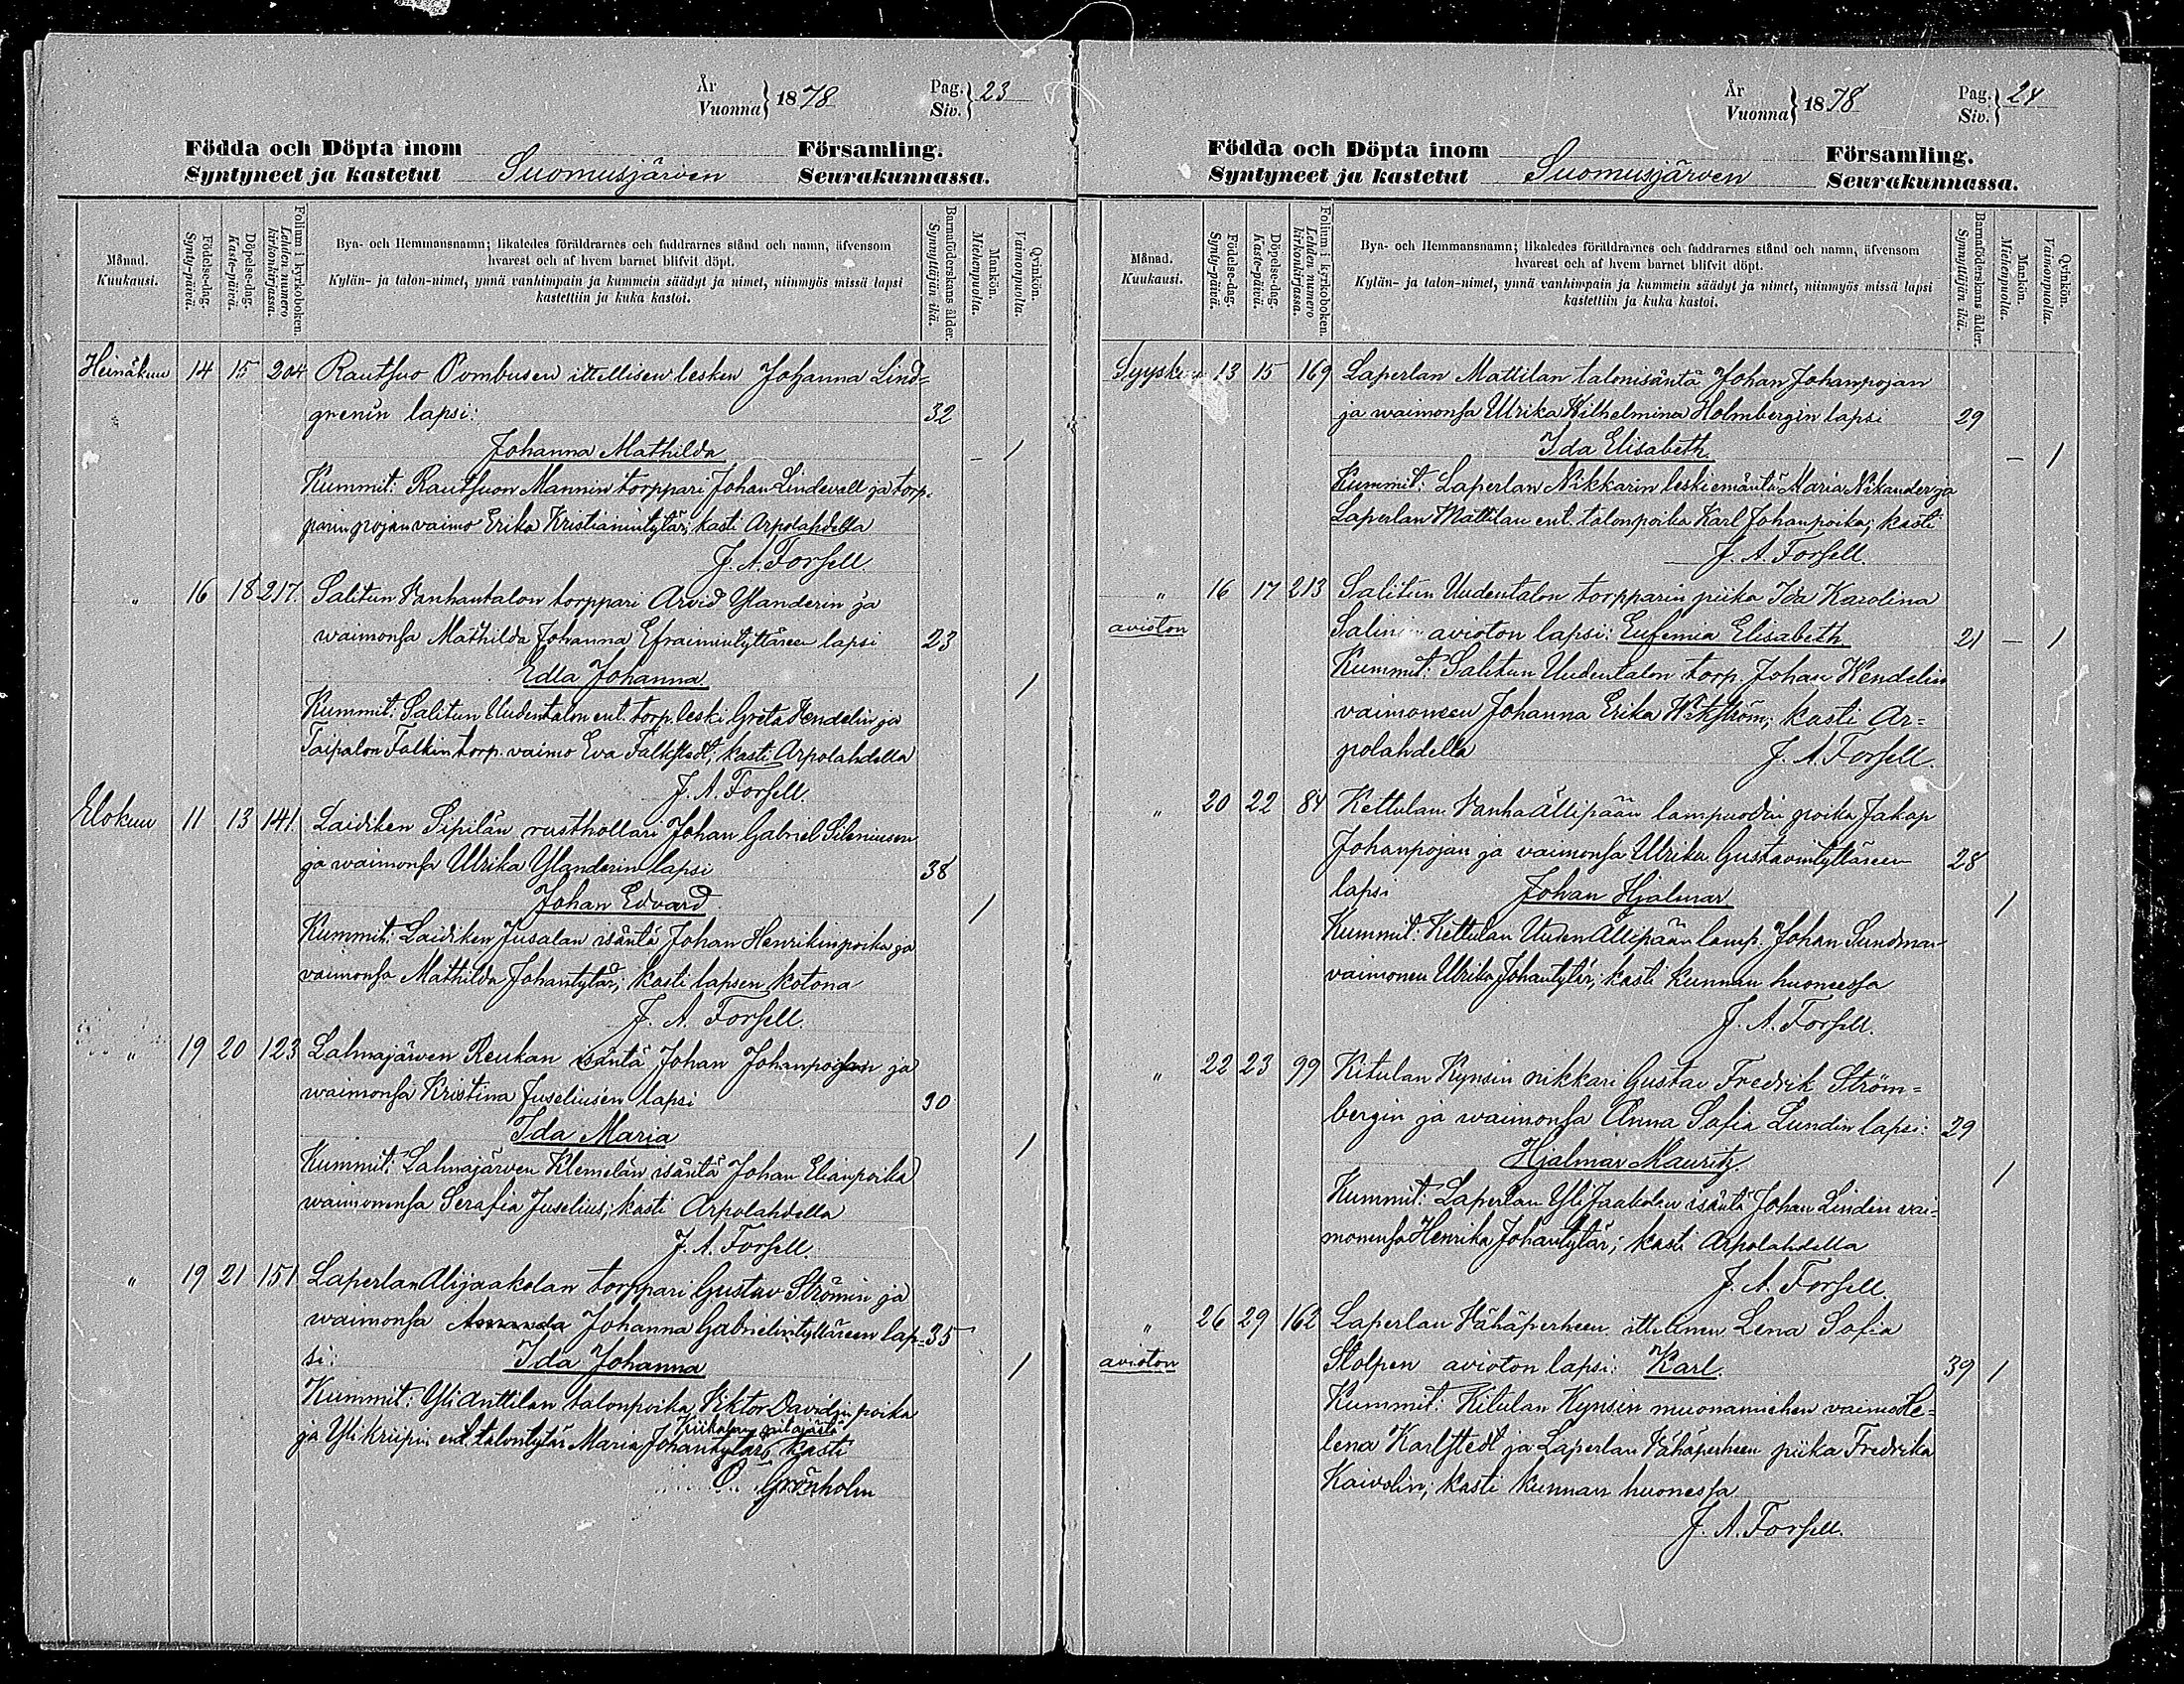 År
Vuonna } 1878
Pag.
Siv. } 23
Födda och Döpta inom Församling.
Syntyneet ja kastetut Suomusjärven Seurakunnassa.
Månad.
Kuukausi.
Födelse-dag.
Synty-päivä.
Döpelse-dag.
Kaste-päivä.
Folium i kyrkoboken.
Lehden numero kirkonkirjassa.
Bya- och Hemmansnamn; likaledes föräldrarnes och faddrarnes stånd och namn, äfvensom
hvarest och af hvem barnet blifvit döpt.
Kylän- ja talon-nimet, ynnä vanhimpain ja kummein säädyt ja nimet, niinmyös missä lapsi
kastettiin ja kuka kastoi.
Barnaföderskans ålder.
Synnyttäjän ikä.
Mankön.
Miehenpuolia.
Qvinkön.
Vaimonpuolia.
Heinäkuu 14 15 204 Rautsuo Pombusen ittellisen lesken Johanna Lind=
grenin lapsi: 32
Johanna Mathilda — 1
Kummit: Rautsuon Mannin torppari Johan Lindevall ja torp-
parin pojan vaimo Erika Kristianintytär; kasti Arpolahdella
J. A. Forsell.
" 16 18 217. Salitun Vanhantalon torppari Arvid Ylanderin ja
waimonsa Mathilda Johanna Efraimintyttären lapsi 23
Edla Johanna 1
Kummit: Salitun Uudentalon ent. torp. leski Greta Wendelin ja
Taipalon Falkin torp. vaimo Eva Falkstedt; kasti Arpolahdella
J. A. Forsell.
Elokuu 11 13 141. Laidiken Sipilän rusthollari Johan Gabriel Sileniusen
ja waimonsa Ulrika Ylanderin lapsi 38
Johan Edvard 1
Kummit: Laidiken Jusalan isäntä Johan Henrikinpoika ja
vaimonsa Mathilda Johantytär; kasti lapsen kotona
J. A. Forsell.
" 19 20 123 Lahnajärven Reukan isäntä Johan Johanpojan ja
waimonsa Kristina Juseliusen lapsi 30
Ida Maria 1
Kummit: Lahnajärven Klemelän isäntä Johan Elianpoika
waimonensa Serafia Juselius; kasti Arpolahdella
J. A. Forsell.
" 19 21 151 Laperlan Alijaakolan torppari Gustav Strömin ja
waimonsa Amanda Johanna Gabrielintyttären lap- 35
si: Ida Johanna 1
Kummit: Yli Anttilan talonpoika Viktor Davidinpoika
Kiikalan pitäjästä
ja Yli kriipin ent. talontytär Maria Johantytär; kasti
O. Grönholm
År
Vuonna } 1878
Pag.
Siv. } 24
Födda och Döpta inom Församling.
Syntyneet ja kastetut Suomusjärven Seurakunnassa.
Månad.
Kuukausi.
Födelse-dag.
Synty-päivä.
Döpelse-dag.
Kaste-päivä.
Folium i kyrkoboken.
Lehden numero kirkonkirjassa.
Bya- och Hemmansnamn; likaledes föräldrarnes och faddrarnes stånd och namn, äfvensom
hvarest och af hvem barnet blifvit döpt.
Kylän- ja talon-nimet, ynnä vanhimpain ja kummein säädyt ja nimet, niinmyös missä lapsi
kastettiin ja kuka kastoi.
Barnaföderskans ålder.
Synnyttäjän ikä.
Mankön.
Miehenpuolia.
Qvinkön.
Vaimonpuolia.
Syysk 13 15 169 Laperlan Mattilan talonisäntä Johan Johanpojan
ja waimonsa Ulrika Wilhelmina Holmbergin lapsi 29
Ida Elisabeth — 1
Kummit: Laperlan Nikkarin leskiemäntä Maria Nikander ja
Laperlan Mattilan ent. talonpoika Karl Johanpoika; kasti
J. A. Forsell.
" 16 17 213 Salitun Uudentalon torpparin piika Ida Karolina
avioton Salinin avioton lapsi: Eufemia Elisabeth 21 — 1
Kummit: Salitun Uudentalon torp. Johan Wendelin
vaimoneen Johanna Erika Wikström; kasti Ar=
polahdella J. A. Forsell.
" 20 22 84 Kettulan Vanha Ällipään lampuodin poika Jakap
Johanpojan ja vaimonsa Ulrika Gustavintyttären 28
lapsi Johan Hjalmar 1
Kummit: Kettulan Uuden Ällipään lamp. Johan Sundman
vaimonen Ulrika Johantytär; kasti kunnan huoneessa
J. A. Forsell.
" 22 23 99 Kitulan Kynsin nikkari Gustav Fredrik Ström=
bergin ja waimonsa Anna Sofia Lundin lapsi: 29
Hjalmar Mauritz. 1
Kummit: Laperlan Yli Jaakolan isäntä Johan Linden vai=
monensa Henrika Johantytär; kasti Arpolahdella
J. A. Forsell.
" 26 29 162 Laperlan Vähäperheen ittellinen Lena Sofia
avioton Stolpen avioton lapsi: Karl. 39 1
Kummit: Kitulan Kynsin muonamiehen vaimo He=
lena Karlstedt ja Laperlan Vähäperheen piika Fredrika
Kaivolin; kasti kunnan huonessa
J. A. Forsell.